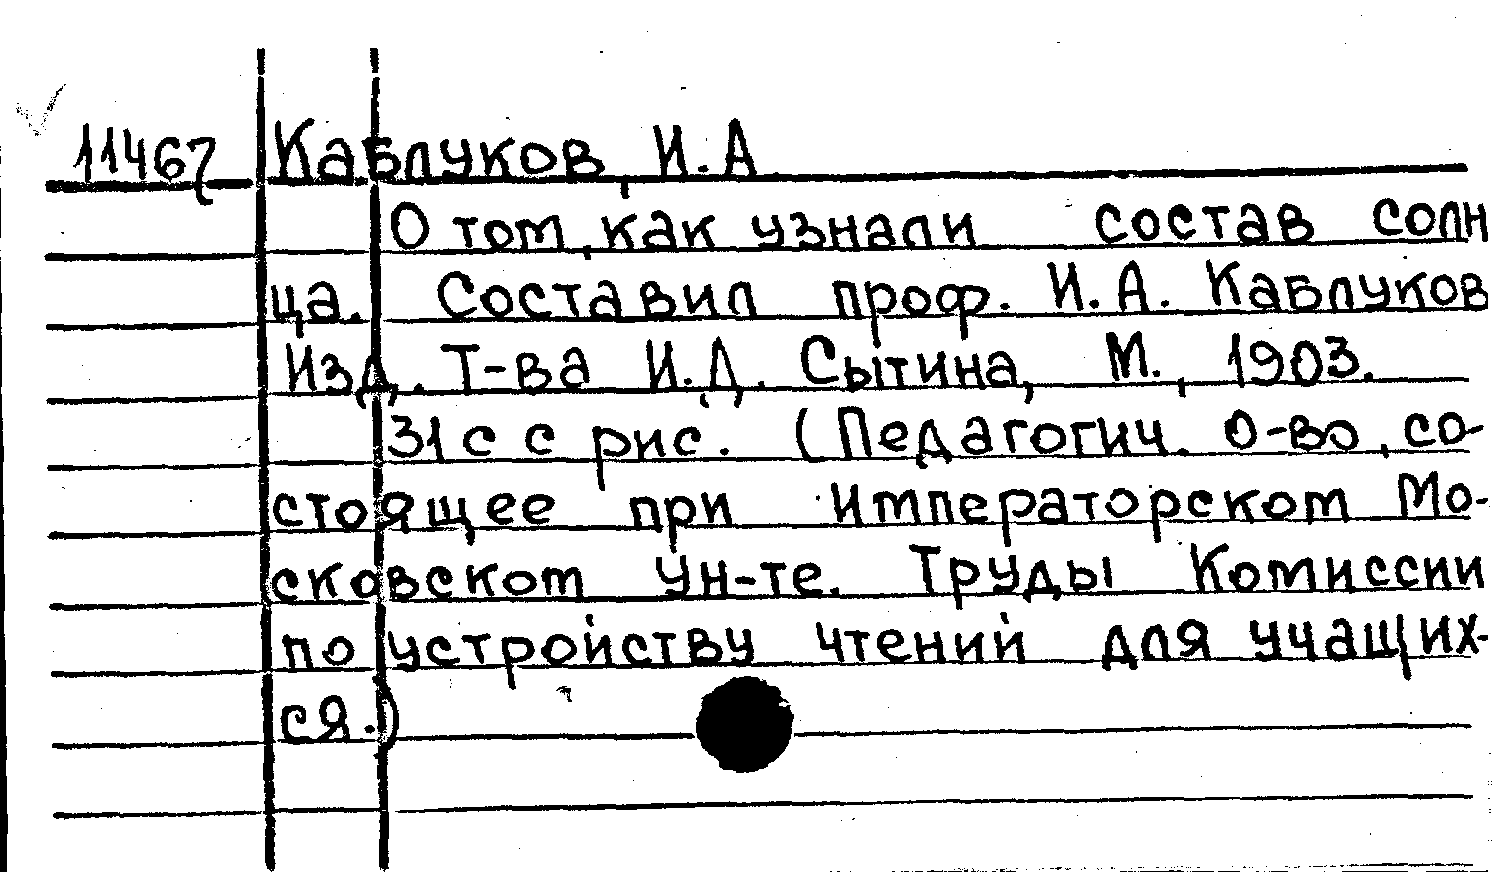 11467 Каблуков, И.А.
О том, как узнали состав солн
ца. Составил проф. И.А. Каблуков
Изд. Т-ва И.Д. Сытина, М., 1903.
31 с с рис. (Педагогич. о-во, со-
стоящее при Императорском Мо-
сковском ун-те. Труды Комиссии
по устройству чтений для учащих-
ся.)